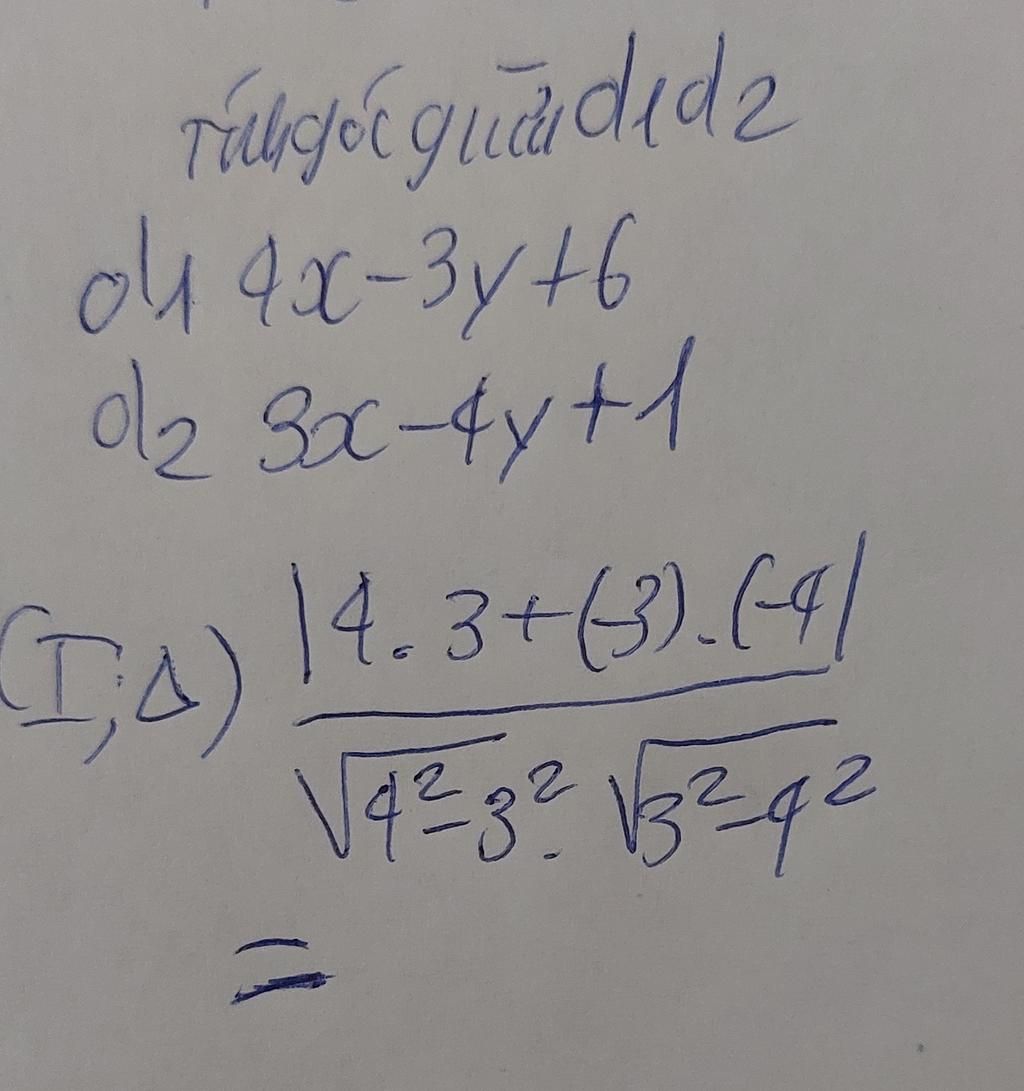 Tính góc giữa d1d2
d1 4x-3y+6
d2 3x-4y+1
(I;Δ) |4.3+(-3).(-4|
√4²-3². √3²-4²
=